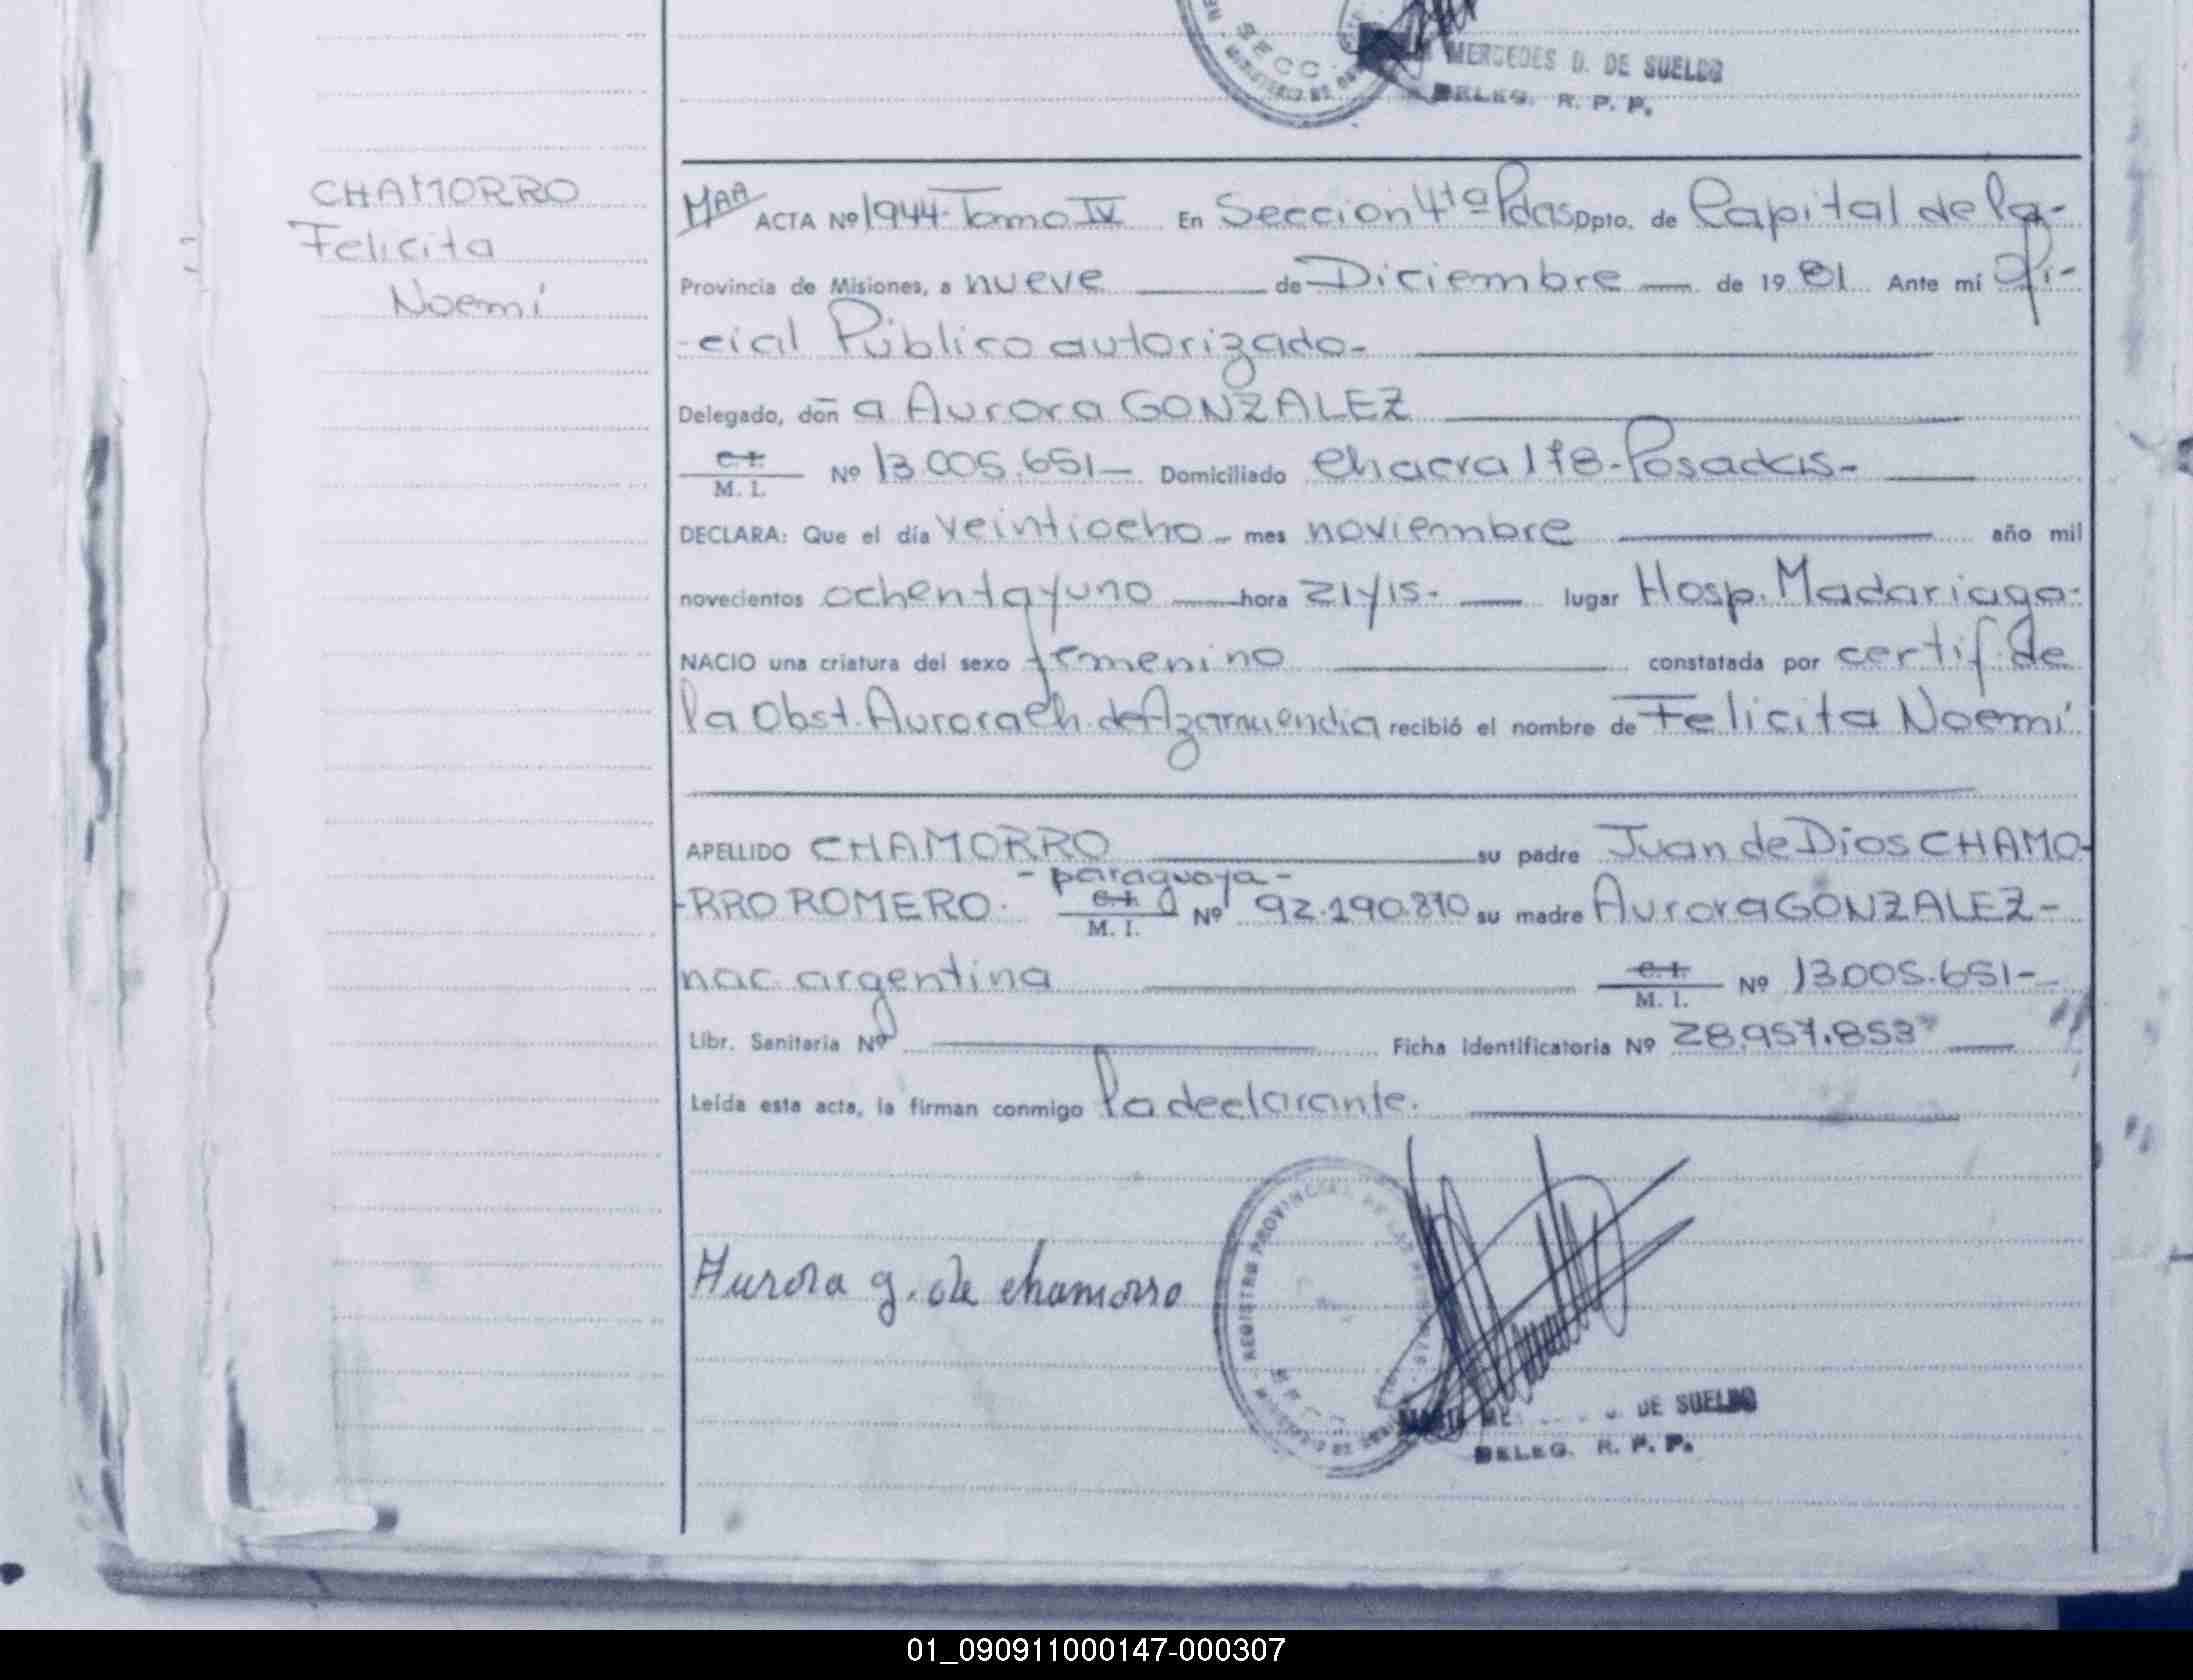 SECC
MERCEDES D. DE SUELDO
DELEG. R. P. P.
CHAMORRO
Felicita
Noemí
ACTA Nº 1944-Tomo IV En Sección 4ta Pdas Dpto. de Capital de la-
Provincia de Misiones, a nueve de Diciembre de 1981. Ante mí Ofi-
-cial Público autorizado-
Delegado, don a Aurora GONZALEZ
C. I.
M. I. Nº 13.005.651- Domiciliado Chacra 178-Posadas-
DECLARA: Que el día veintiocho- mes noviembre año mil
novecientos ochenta y uno hora 21/15- lugar Hosp. Madariaga-
NACIO una criatura del sexo femenino constatada por certif. de
la Obst. Aurora Ch. de recibió el nombre de Felicita Noemí
APELLIDO CHAMORRO su padre Juan de Dios CHAMO-
-paraguaya-
-RRO ROMERO. C. I.
M. I. Nº 92.190.810 su madre Aurora GONZALEZ-
nac. argentina C. I.
M. I. Nº 13.005.651-
Libr. Sanitaria Nº Ficha identificatoria Nº 28.957.853
Leída esta acta, la firman conmigo la declarante.
Aurora g. de chamorro
REGISTRO PROVINCIAL DE LAS PERSONAS
DE SUELDO
DELEG. R. P. P.
01_090911000147-000307